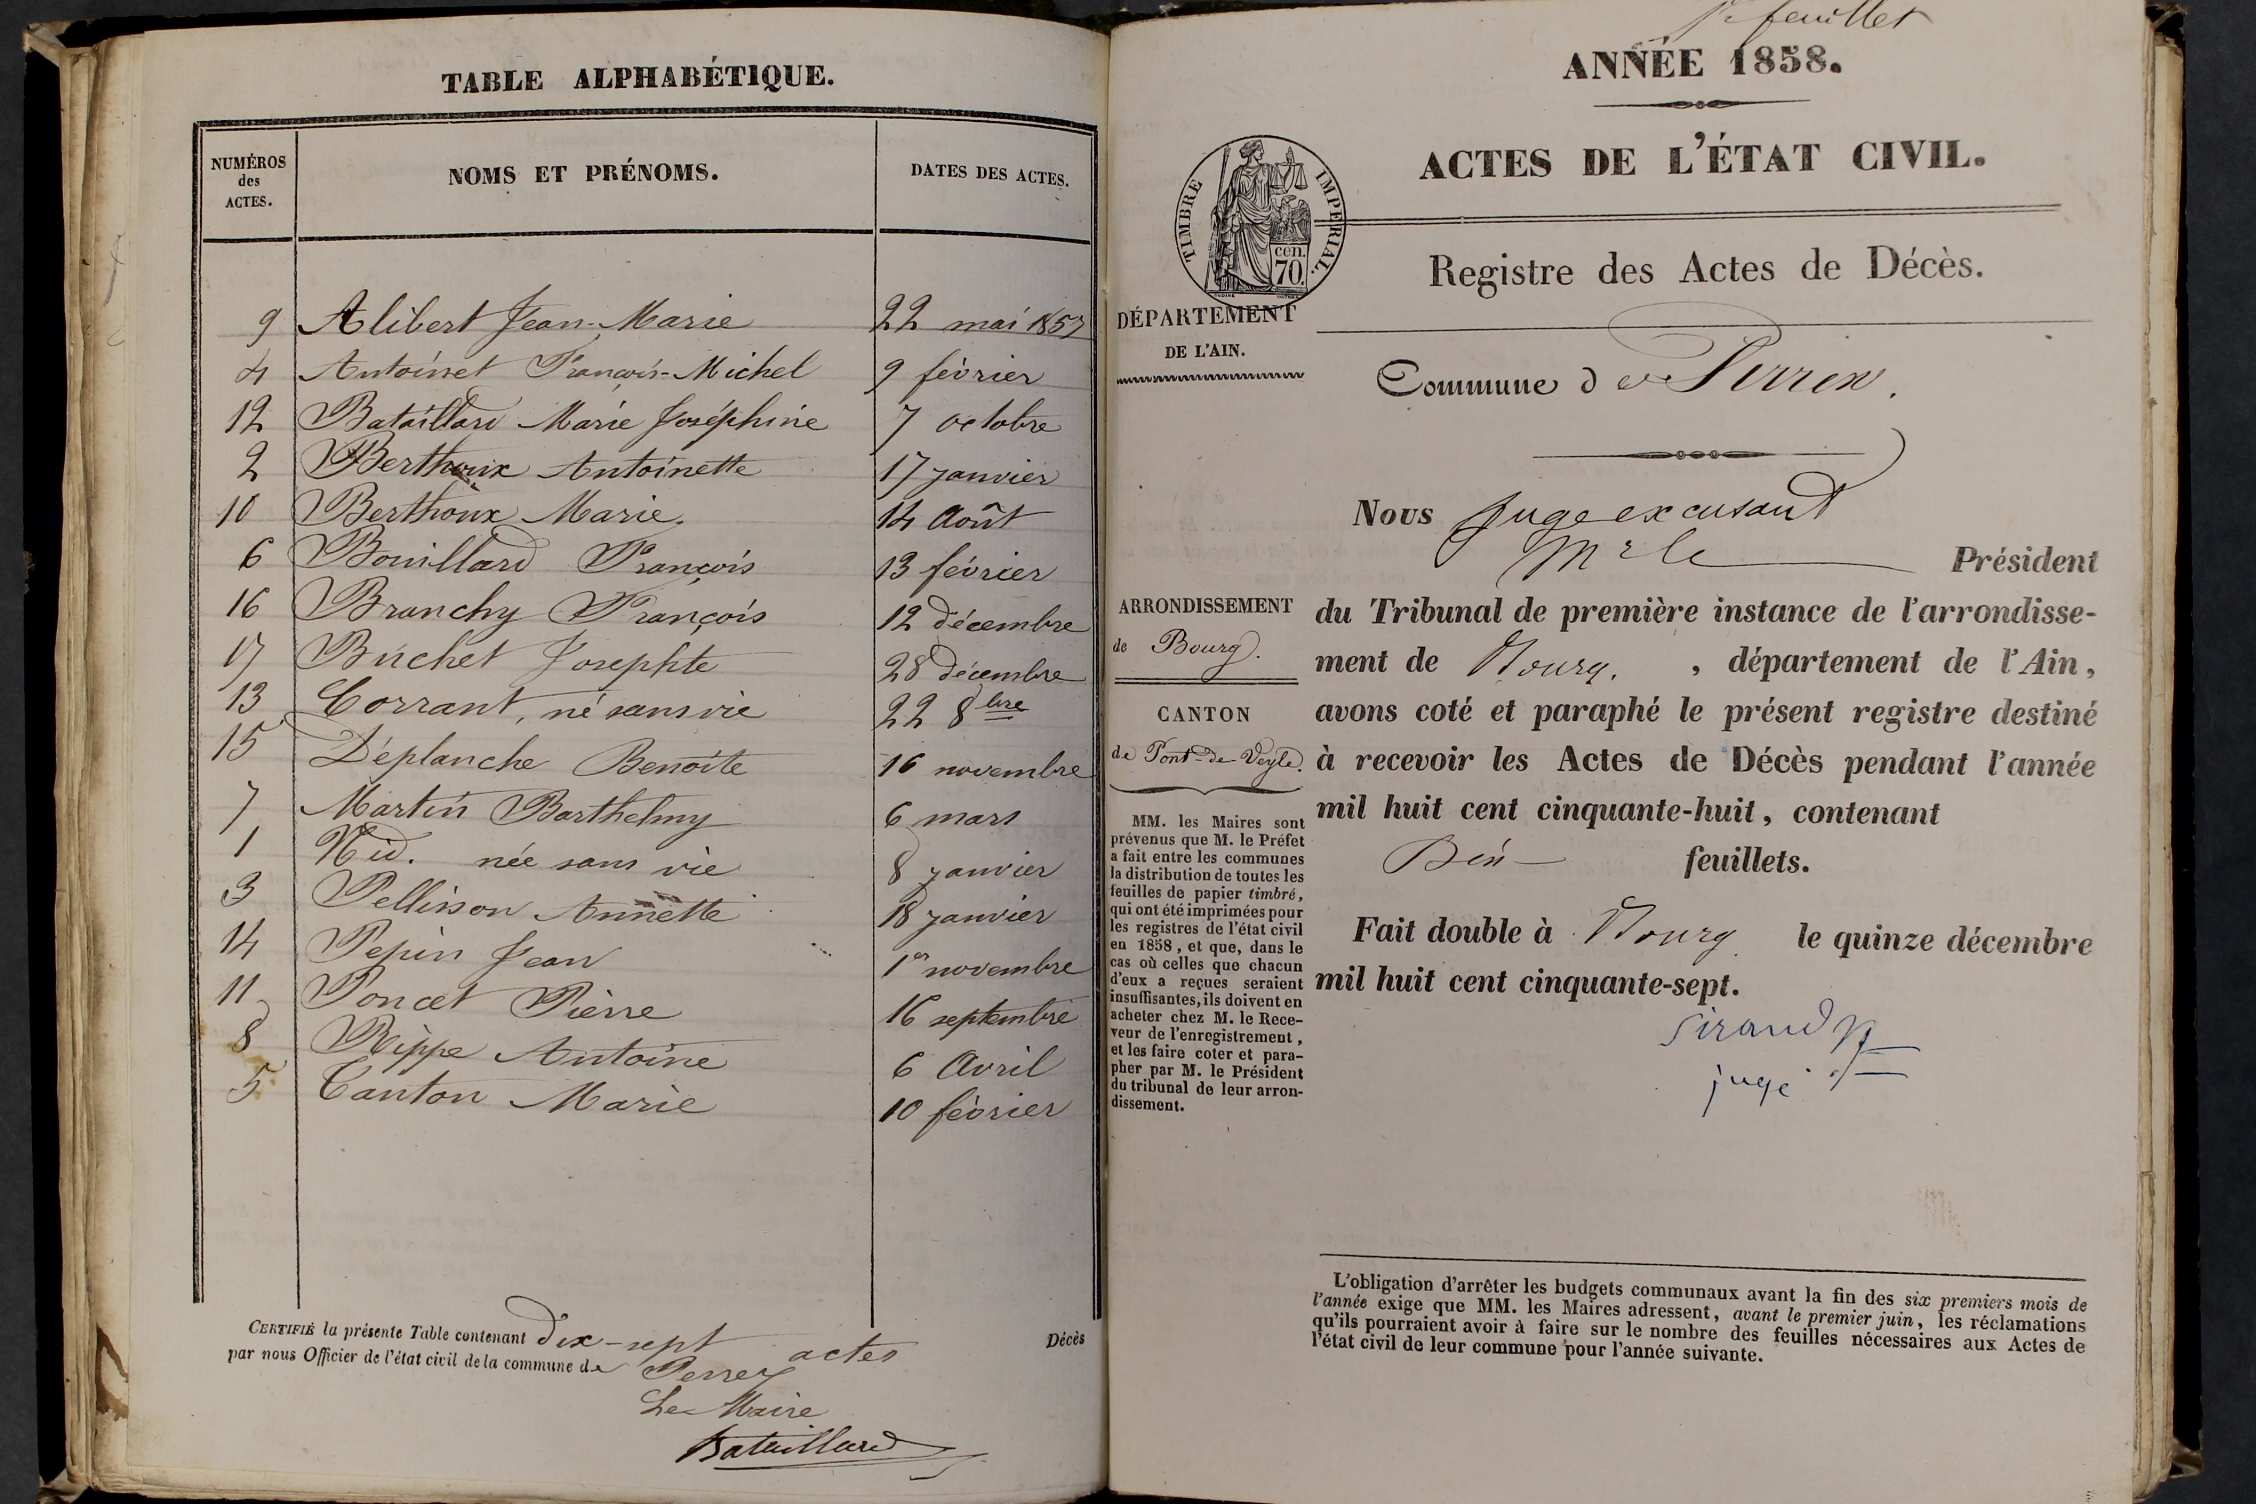 TABLE ALPHABÉTIQUE.
NUMÉROS des ACTES. NOMS ET PRÉNOMS. DATES DES ACTES.
9 Alibert Jean-Marie 22 mai 1857
4 Antoinet François-Michel 9 février
12 Bataillard Marie Joséphine 7 octobre
2 Berthoux Antoinette 17 janvier
10 Berthoux Marie. 14 Août
6 Bouillard François 13 février
16 Branchy François 12 décembre
17 Buchet Josephte 28 décembre
13 Corrant, né sans vie 22 8bre
15 Déplanche Benoite 16 novembre
7 Martin Barthelmy 6 mars
1 Nid. née sans vie 8 janvier
3 Pellisson Annette 18 janvier
14 Pepin Jean 1er novembre
11 Poncet Pierre 16 septembre
8 Rippe Antoine 6 Avril
5 Canton Marie 10 février
CERTIFIÉ la présente Table contenant dix-sept actes Décès
par nous Officier de l'état civil de la commune de Perrex
Le Maire
Bataillard
1er feuillet
ANNÉE 1858.
ACTES DE L'ÉTAT CIVIL.
TIMBRE IMPERIAL.
cen.
70.
Registre des Actes de Décès.
DÉPARTEMENT
DE L'AIN.
Commune de Perrex.
Nous Juge excusant
Mr le Président
ARRONDISSEMENT
de Bourg.
CANTON
de Pont-de-Veyle.
MM. les Maires sont
prévenus que M. le Préfet
a fait entre les communes
la distribution de toutes les
feuilles de papier timbré,
qui ont été imprimées pour
les registres de l'état civil
en 1858, et que, dans le
cas où celles que chacun
d'eux a reçues seraient
insuffisantes, ils doivent en
acheter chez M. le Rece-
veur de l'enregistrement,
et les faire coter et para-
pher par M. le Président
du tribunal de leur arron-
dissement.
du Tribunal de première instance de l'arrondisse-
ment de Bourg. , département de l'Ain,
avons coté et paraphé le présent registre destiné
à recevoir les Actes de Décès pendant l'année
mil huit cent cinquante-huit, contenant
feuillets.
Fait double à Bourg le quinze décembre
mil huit cent cinquante-sept.
Sirand
juge
L'obligation d'arrêter les budgets communaux avant la fin des six premiers mois de
l'année exige que MM. les Maires adressent, avant le premier juin, les réclamations
qu'ils pourraient avoir à faire sur le nombre des feuilles nécessaires aux Actes de
l'état civil de leur commune pour l'année suivante.